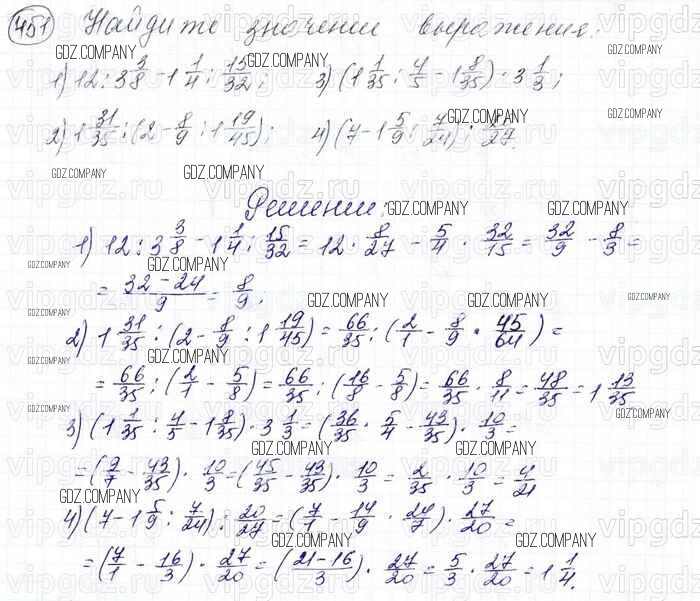 451 Найдите значении выражения:
1) 12 : 3 3/8 - 1 1/4 : 15/32; 3) (1 1/35 : 4/5 - 1 8/35) · 3 1/3;
2) 1 31/35 : (2 - 8/9 : 1 19/45); 4) (7 - 1 5/9 : 7/24) : /27.
Решении:
1) 12 : 3 3/8 - 1 1/4 : 15/32 = 12 · 8/27 - 5/4 · 32/15 = 32/9 - 8/3 =
= 32-24/9 = 8/9;
2) 1 31/35 : (2 - 8/9 : 1 19/45) = 66/35 : (2/1 - 8/9 · 45/64) =
= 66/35 : (2/1 - 5/8) = 66/35 : (16/8 - 5/8) = 66/35 · 8/11 = 48/35 = 1 13/35
3) (1 1/35 : 4/5 - 1 8/35) · 3 1/3 = (36/35 · 5/4 - 43/35) · 10/3 =
= (9/7 - 43/35) · 10/3 = (45/35 - 43/35) · 10/3 = 2/35 · 10/3 = 4/21
4) (7 - 1 5/9 : 7/24) : 20/27 = (7/1 - 14/9 · 24/7) · 27/20 =
= (7/1 - 16/3) · 27/20 = (21-16/3) · 27/20 = 5/3 · 27/20 = 1 1/4.
GDZ.COMPANY
vipgdz.ru